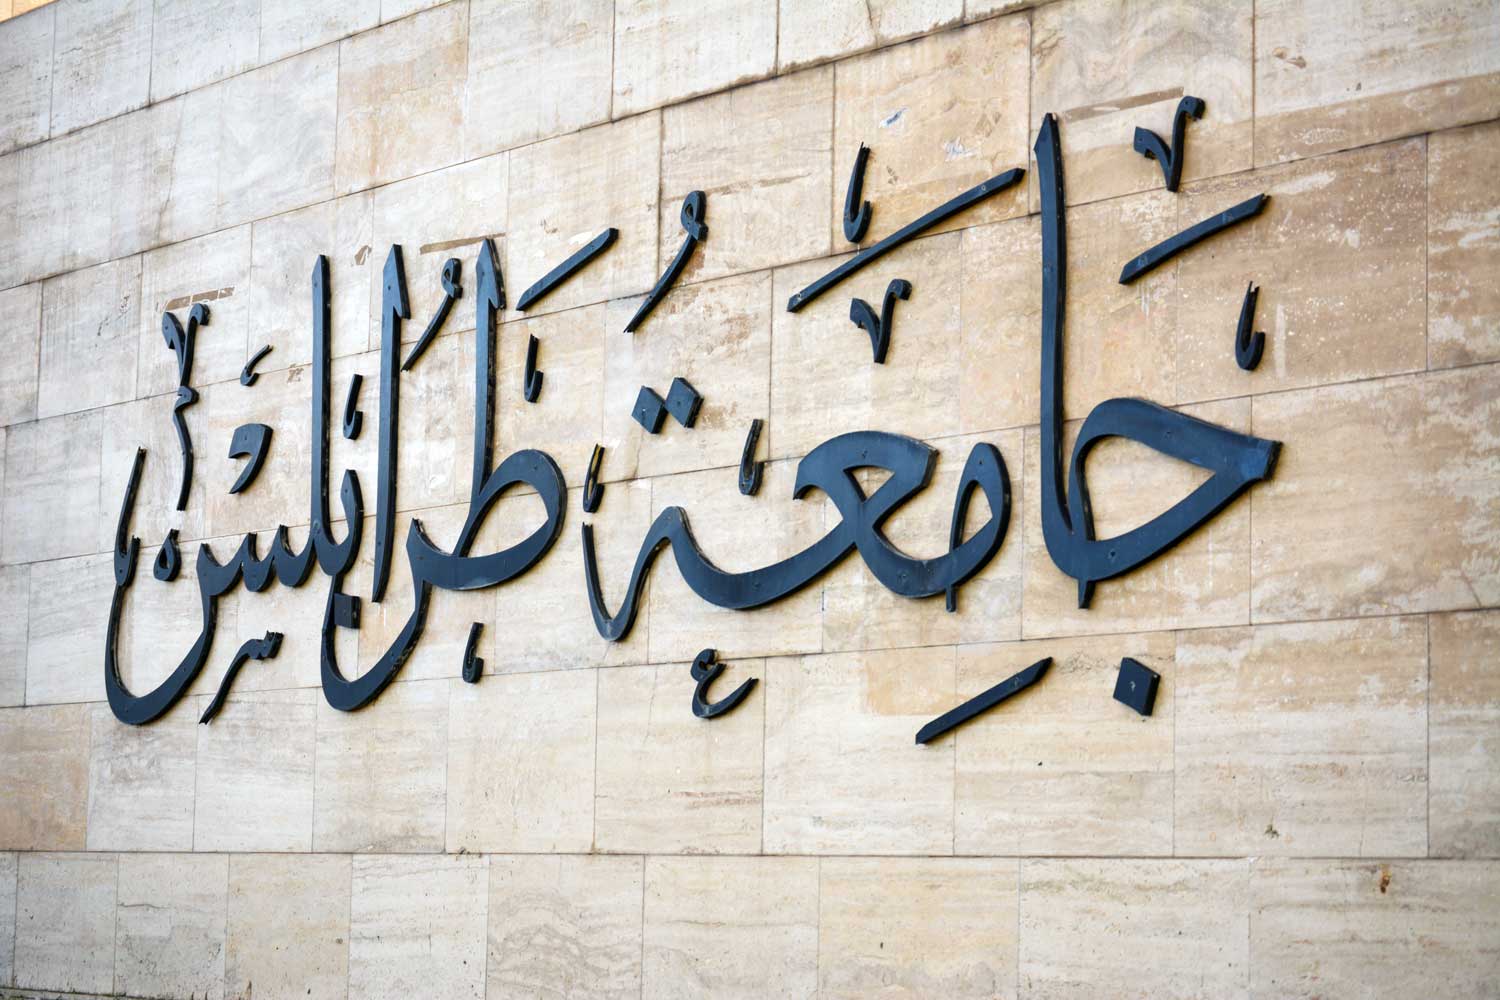 جَامِعَةُ طَرَابُلُسَ